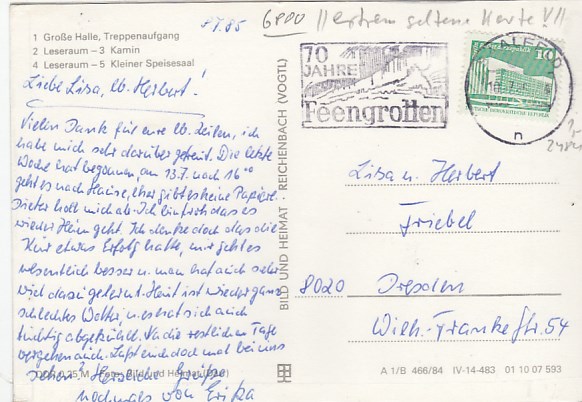 1 Große Halle, Treppenaufgang
2 Leseraum – 3 Kamin
4 Leseraum – 5 Kleiner Speisesaal
Liebe Lisa, lb. Herbert!
Vielen Dank für eure lb. Zeilen, ich
habe mich sehr darüber gefreut. Die letzte
Woche hat begonnen, am 13.7. nach 16°°
geht es nach Hause, eher gibt es keine Papiere.
Dieter holt mich ab. Ich bin froh das es
wieder Heim geht. Ich denke doch das die
Kur etwas Erfolg hatte, mir geht es
wesentlich besser u. man hat auch sehr
viel dazu gelernt. Heut ist wieder ganz
schlechtes Wetter, u. es hat sich auch
tüchtig abgekühlt. Na die restlichen Tage
vergehen auch. Laßt euch doch mal bei uns
sehen? Herzliche Grüße
nochmals von Erika
DDR 0,25 M Foto: Bild und Heimat
BILD UND HEIMAT · REICHENBACH (VOGTL)
6800 // extrem seltene Karte !//
70
JAHRE
Feengrotten
10
n
Lisa u. Herbert
Friebel
8020 Dresden
Wilh.-Franke Str. 54
A 1/B 466/84 IV-14-483 01 10 07 593